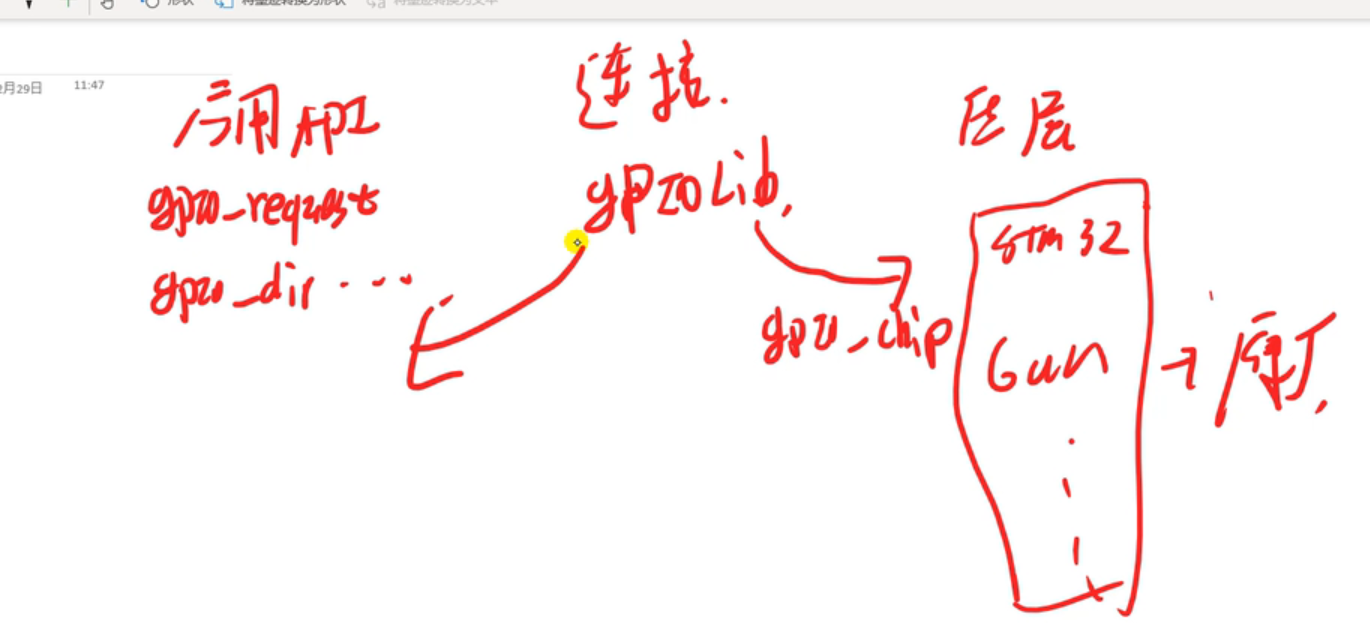 形状
将墨迹转换为形状
将墨迹转换为文本
2月29日 11:47
应用API
gpio_request
gpio_dir ....
连接.
gpioLib,
gpio_chip
底层
STM32
→原厂,